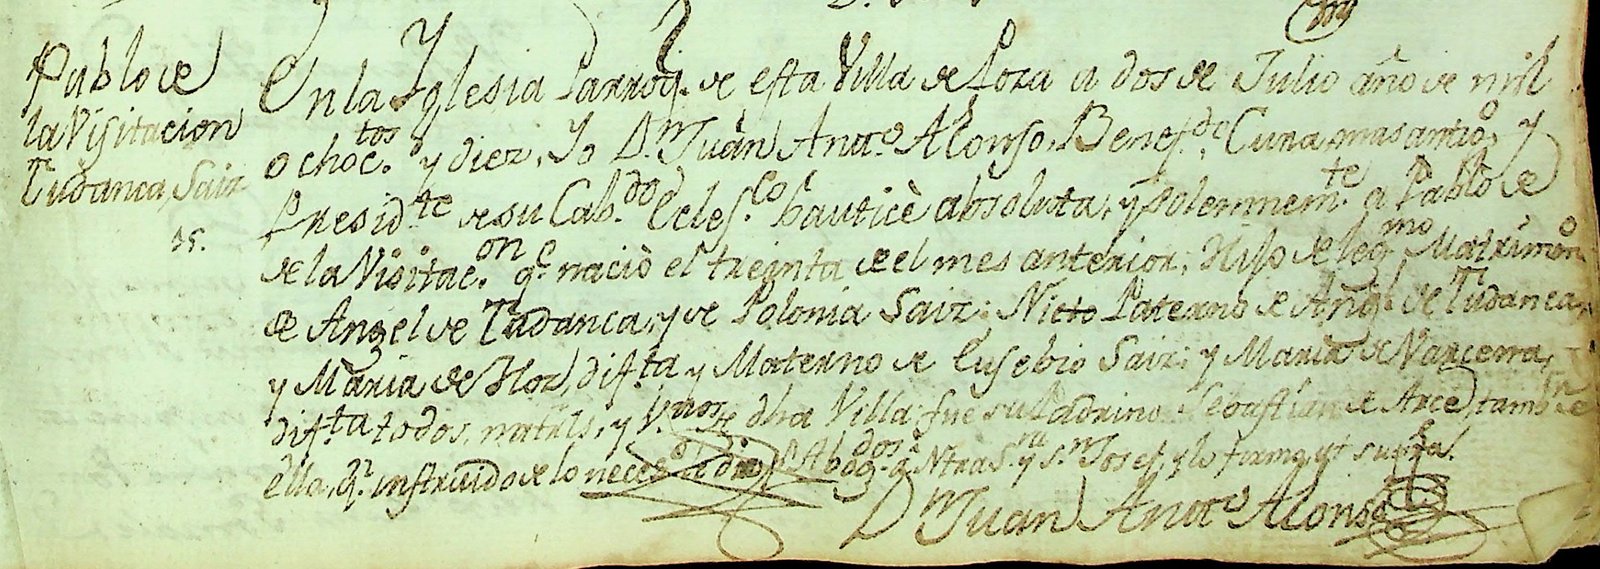 Pablo de
la Visitacion
Tudanca, Saiz
En la Yglesia Parroq.l de esta Villa de Poza a dos de Julio año de mil
ochoc.tos y diez, Yo D.n Juan Ant.o Alonso, Benef.do Cura mas antig.o y
Presid.te de su Cab.do Ecles.co bauticè absoluta, y solemnem.te a Pablo de
de la Visitac.on q.e naciò el treinta de el mes anterior, Hijo de leg.mo Matrimon.o
de Angel de Tudanca, y de Polonia Saiz: Nieto Paterno de Ang.l de Tudanca,
y Maria de Hoz, dif.ta y Materno de Eusebio Saiz, y Maria de Narcerra,
dif.ta todos, natrls, y V.nos de dha Villa: fue su Padrino Sebastian de Arce, tamb.n de
ella, q.n instruido de lo neces.o Abog.dos a Ntra S.ra y S.n Josef, y lo firmo, ut supra.
D.n Juan Ant.o Alonso